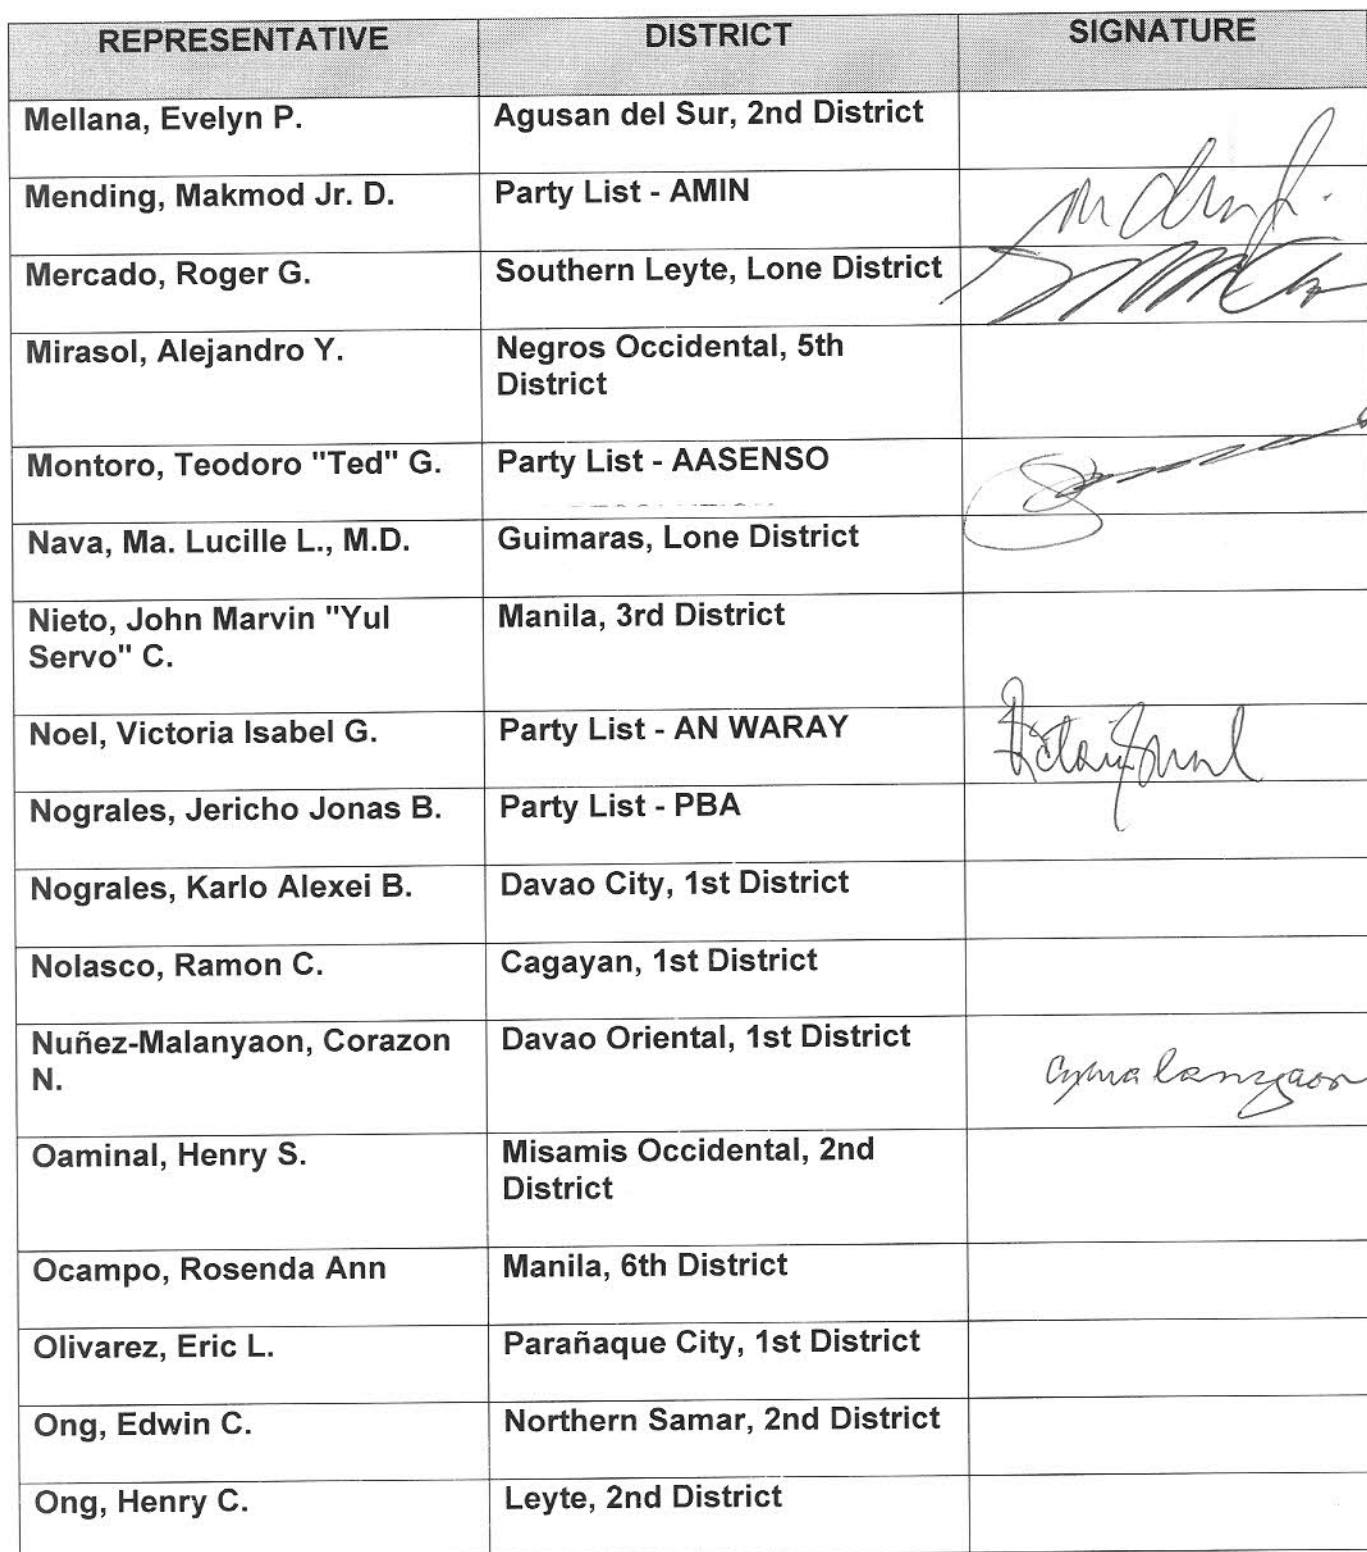 REPRESENTATIVE DISTRICT SIGNATURE
Mellana, Evelyn P. Agusan del Sur, 2nd District
Mending, Makmod Jr. D. Party List - AMIN
Mercado, Roger G. Southern Leyte, Lone District
Mirasol, Alejandro Y. Negros Occidental, 5th
District
Montoro, Teodoro "Ted" G. Party List - AASENSO
Nava, Ma. Lucille L., M.D. Guimaras, Lone District
Nieto, John Marvin "Yul Manila, 3rd District
Servo" C.
Noel, Victoria Isabel G. Party List - AN WARAY
Nograles, Jericho Jonas B. Party List - PBA
Nograles, Karlo Alexei B. Davao City, 1st District
Nolasco, Ramon C. Cagayan, 1st District
Nuñez-Malanyaon, Corazon Davao Oriental, 1st District
N.
Oaminal, Henry S. Misamis Occidental, 2nd
District
Ocampo, Rosenda Ann Manila, 6th District
Olivarez, Eric L. Parañaque City, 1st District
Ong, Edwin C. Northern Samar, 2nd District
Ong, Henry C. Leyte, 2nd District